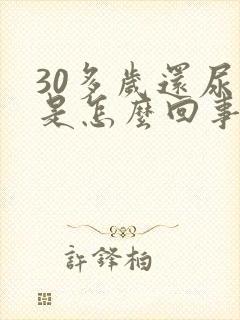 30多歲還尿
是怎麼回事
許鋒柏